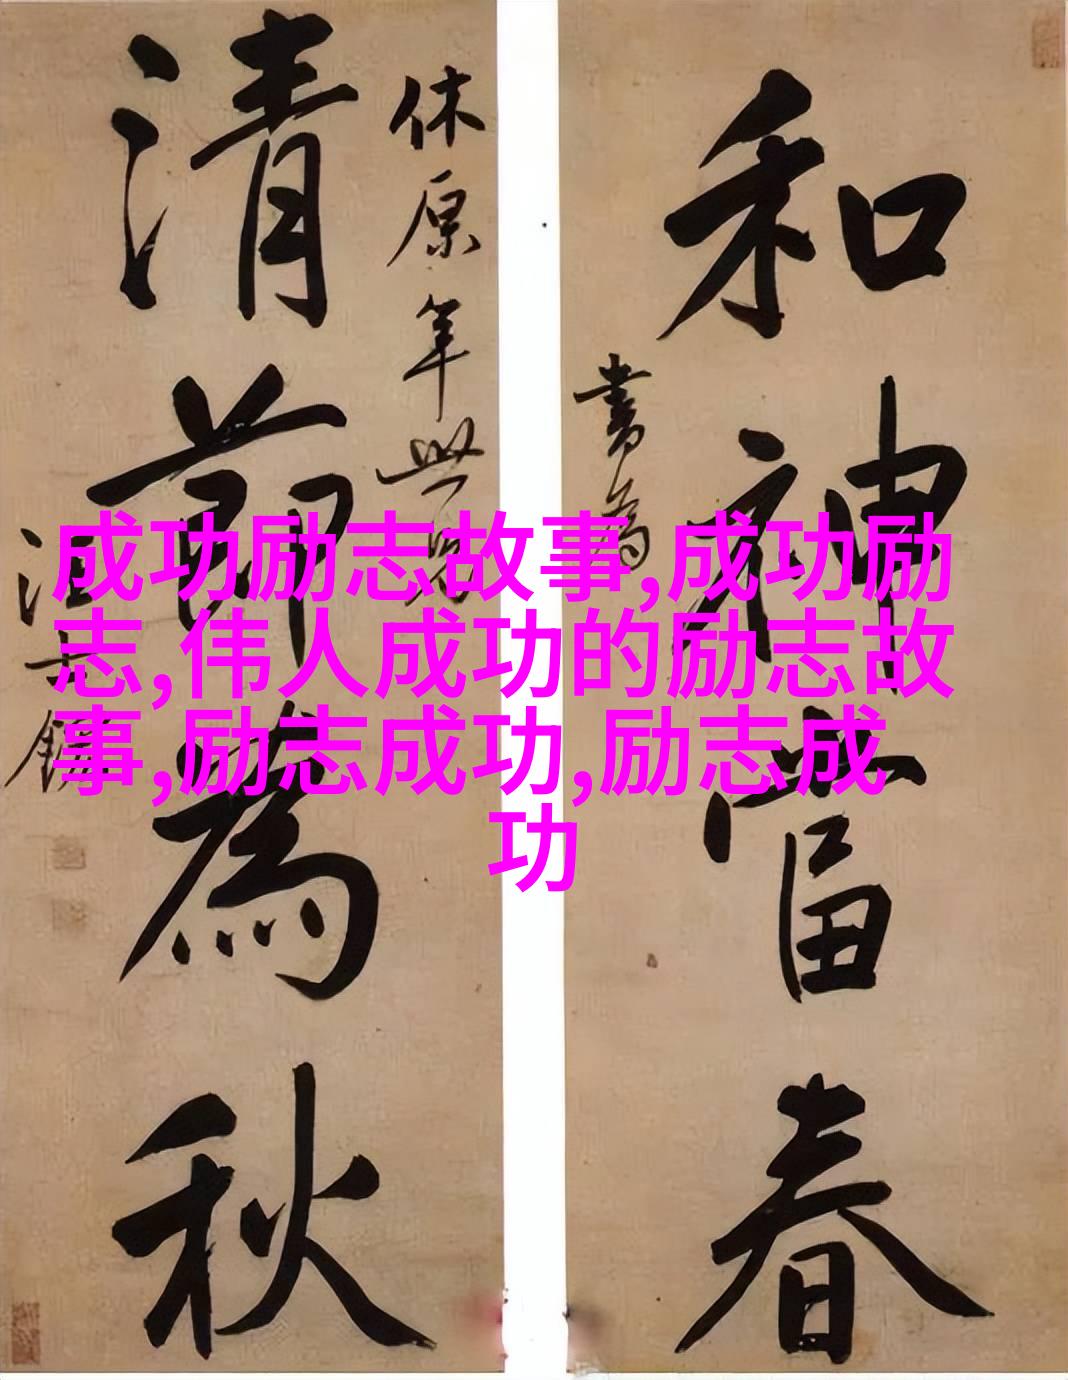 和神當春
書為
休原年世兄
清節為秋
汪士鋐
成功励志故事,成功励
志,伟人成功的励志故
事,励志成功,励志成
功